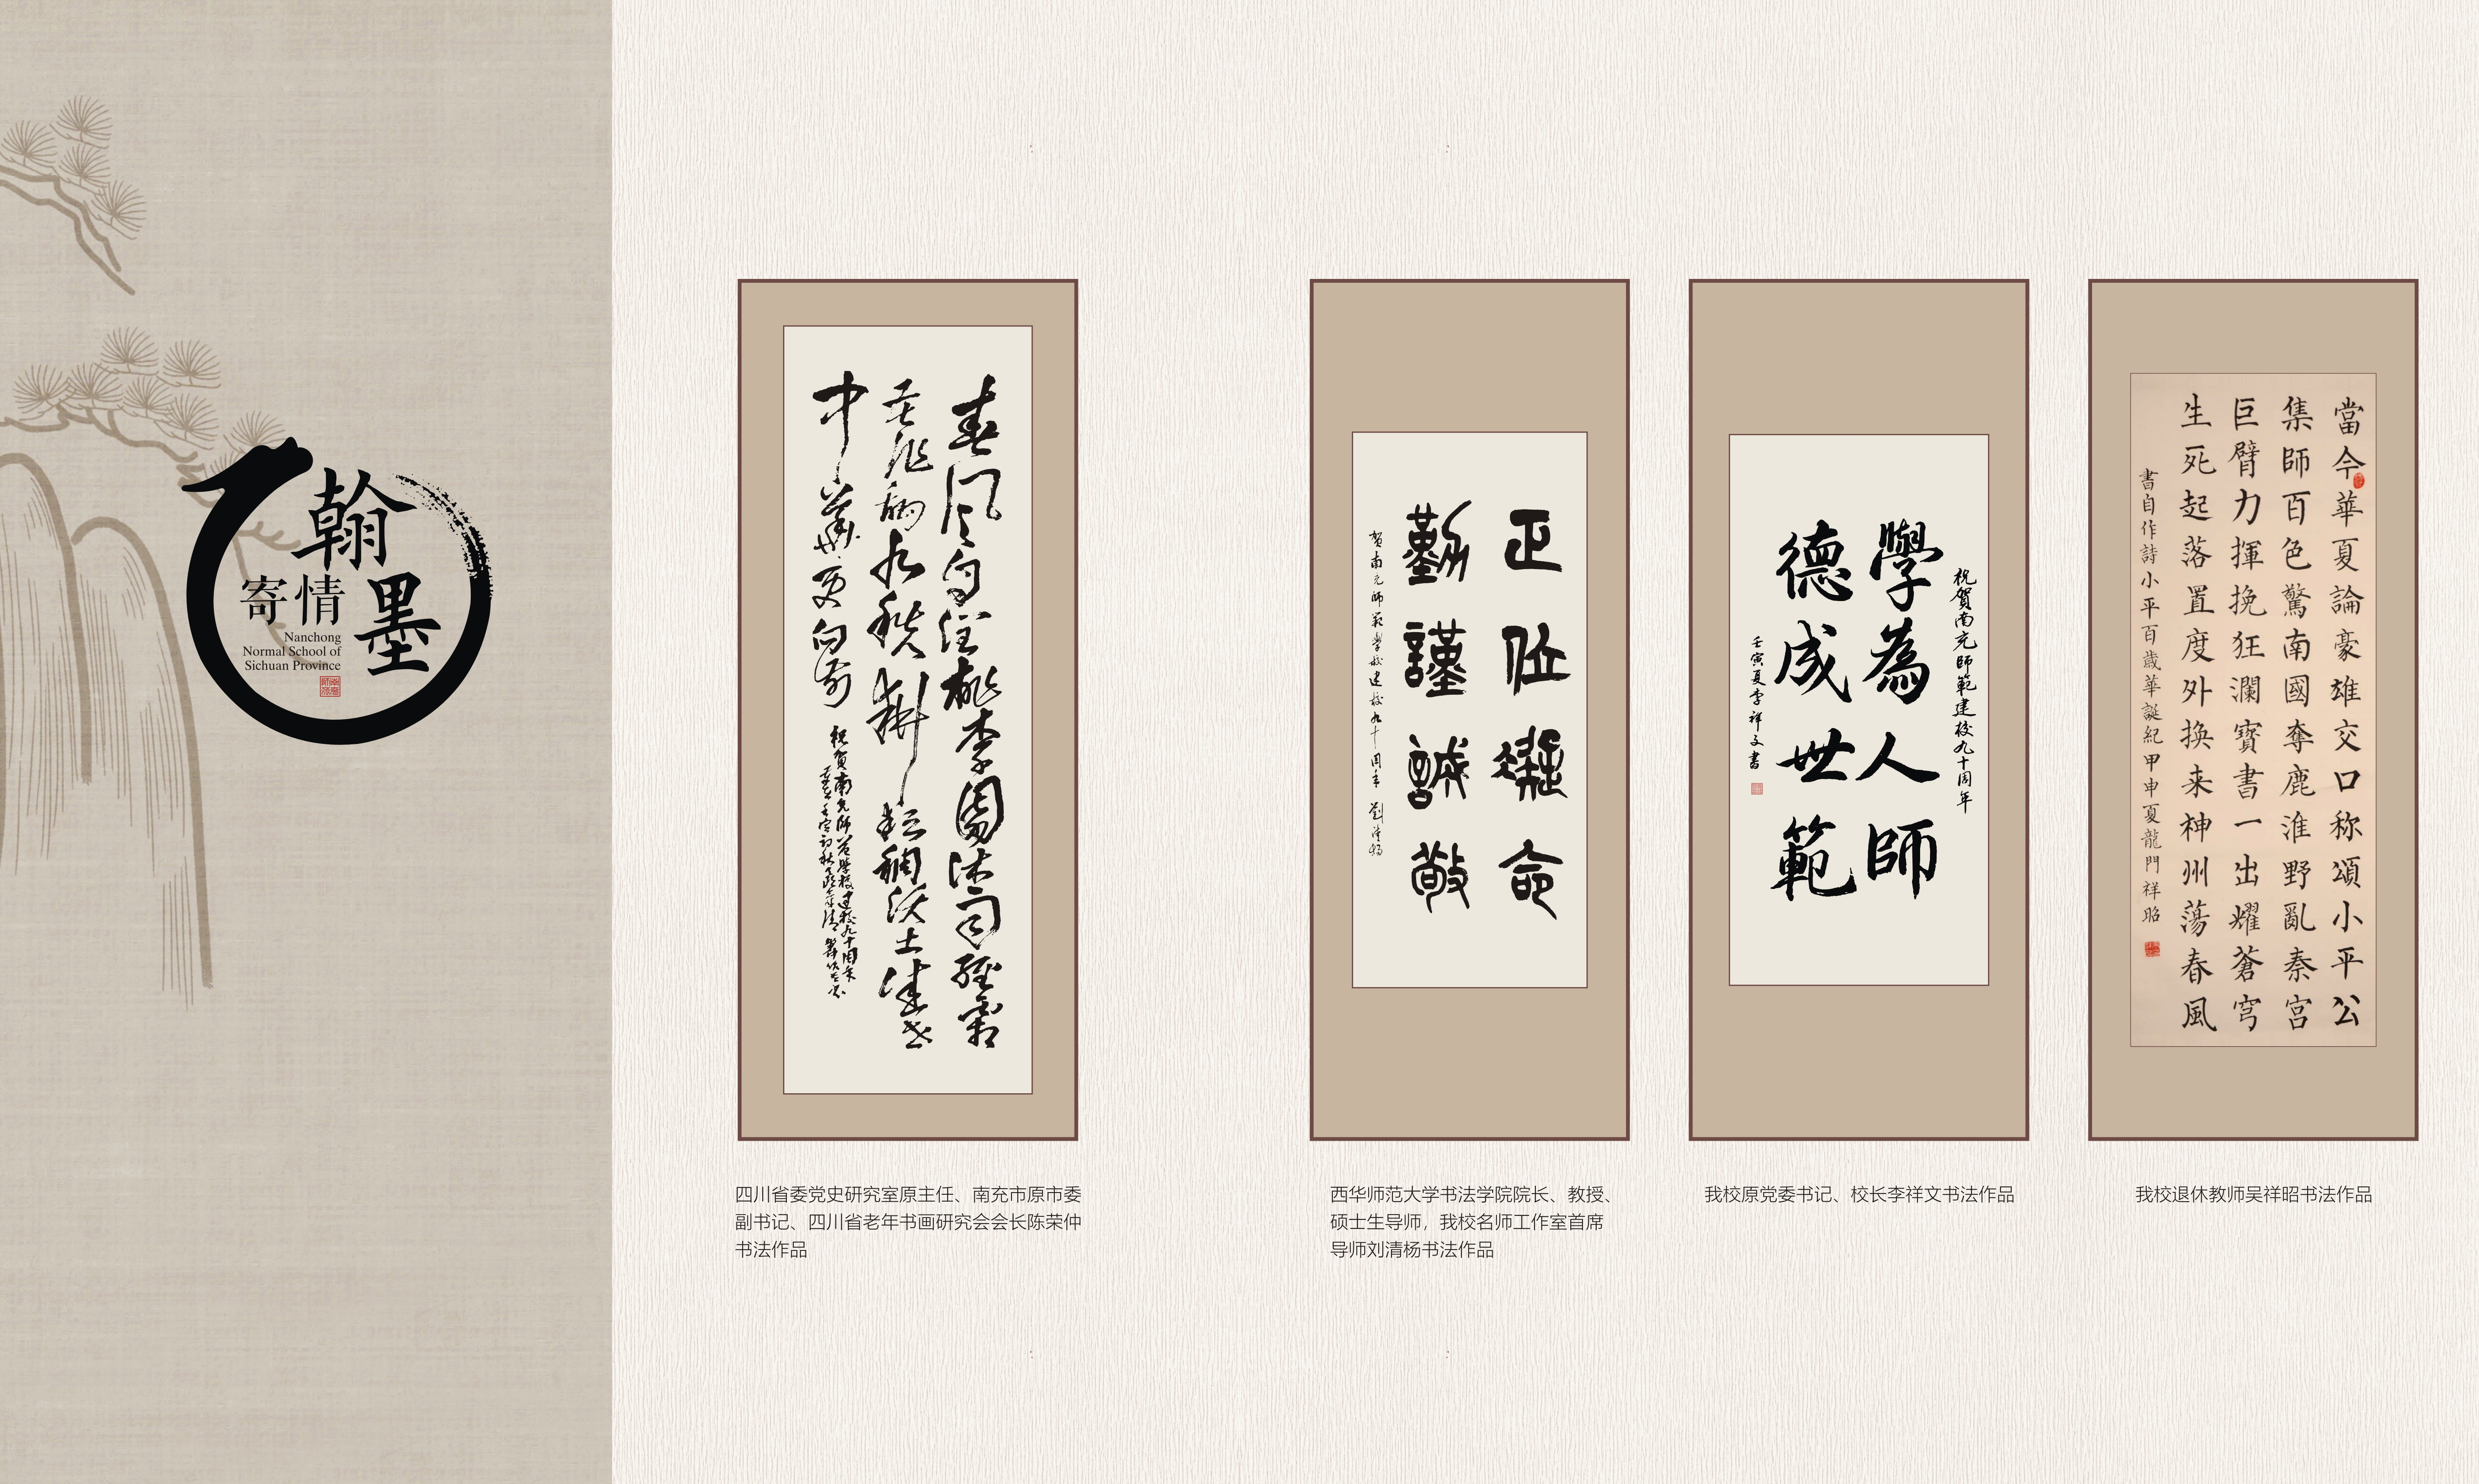 翰墨
寄情
Nanchong
Normal School of
Sichuan Province
春风
桃李園沐雨經霜
九秩耕耘稠沃土
中華更向前
祝賀南充師范學校建校九十周年
正位凝命
勤謹誠敬
贺南充師範學校建校九十周年 劉清揚
祝賀南充師範建校九十周年
學為人師
德成世範
壬寅夏李祥文書
當今華夏論豪雄交口称頌小平公
集師百色驚南國奪鹿淮野亂秦宫
巨臂力揮挽狂瀾寶書一出耀蒼穹
生死起落置度外换来神州蕩春風
書自作詩小平百歲華誕紀甲申夏龍門祥昭
四川省委党史研究室原主任、南充市原市委
副书记、四川省老年书画研究会会长陈荣仲
书法作品
西华师范大学书法学院院长、教授、
硕士生导师，我校名师工作室首席
导师刘清杨书法作品
我校原党委书记、校长李祥文书法作品
我校退休教师吴祥昭书法作品